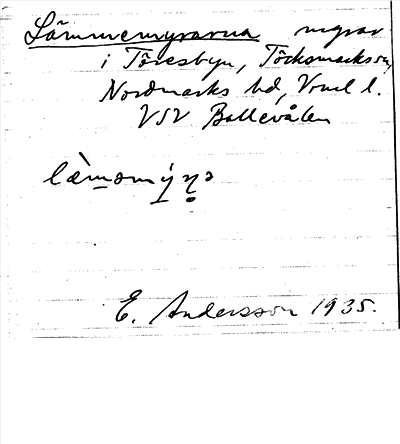 Lämmemyrarna myrar
i Töresbyn, Töcksmarks sn,
Nordmarks hd, Vrml l.
VSV Bollevålen
E. Andersson 1935.